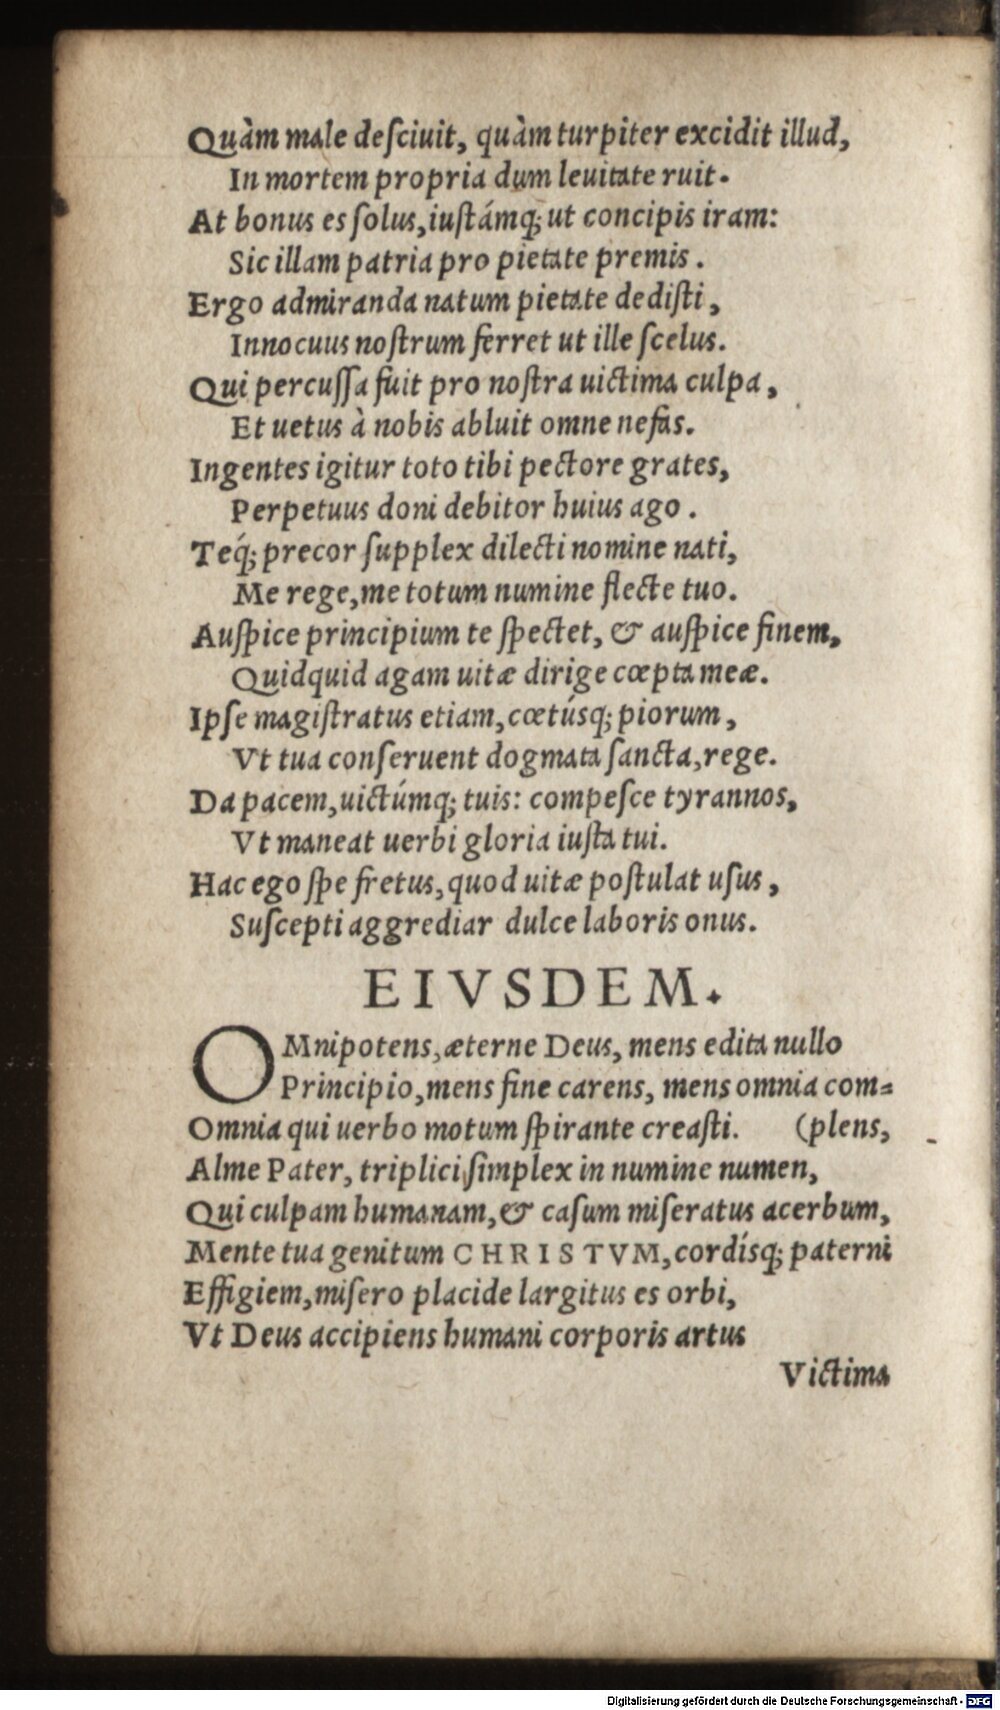 Quàm male deſciuit, quàm turpiter excidit illud,
In mortem propria dum leuitate ruit.
At bonus es ſolus, iuſtámq; ut concipis iram:
Sic illam patria pro pietate premis.
Ergo admiranda natum pietate dediſti,
Innocuus noſtrum ferret ut ille ſcelus.
Qui percuſſa fuit pro noſtra uictima culpa,
Et uetus à nobis abluit omne nefas.
Ingentes igitur toto tibi pectore grates,
Perpetuus doni debitor huius ago.
Teq́; precor ſupplex dilecti nomine nati,
Me rege, me totum numine flecte tuo.
Auſpice principium te ſpectet, & auſpice finem,
Quidquid agam uitæ dirige cœpta meæ.
Ipſe magiſtratus etiam, cœtúsq; piorum,
Vt tua conſeruent dogmata ſancta, rege.
Da pacem, uictúmq; tuis: compeſce tyrannos,
Vt maneat uerbi gloria iuſta tui.
Hac ego ſpe fretus, quod uitæ poſtulat uſus,
Suſcepti aggrediar dulce laboris onus.
EIVSDEM.
OMnipotens, æterne Deus, mens edita nullo
Principio, mens fine carens, mens omnia com=
Omnia qui uerbo motum ſpirante creaſti. (plens,
Alme Pater, triplici ſimplex in numine numen,
Qui culpam humanam, & caſum miſeratus acerbum,
Mente tua genitum CHRISTVM, cordísq; paterni
Effigiem, miſero placide largitus es orbi,
Vt Deus accipiens humani corporis artus
Victima
Digitalisierung gefördert durch die Deutsche Forschungsgemeinschaft - DFG